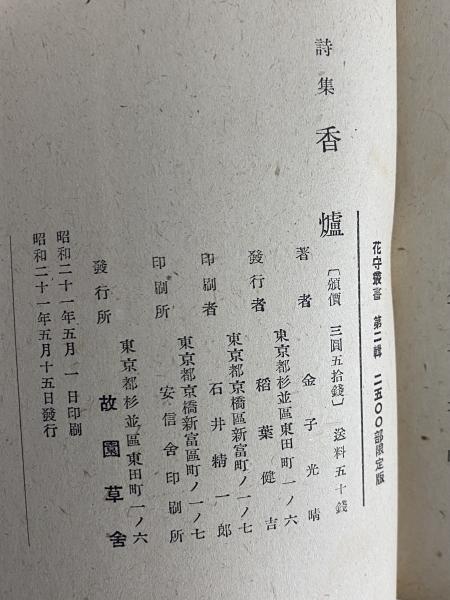 花守叢書 第二輯 二五〇〇部限定版
詩集 香爐 〔頒價 三圓五拾錢〕 送料五十錢
著者 金子光晴
東京都杉並區東田町一ノ六
發行者 稻葉健吉
東京都京橋區新富町ノ一ノ七
印刷者 石井精一郎
東京都京橋新富區町ノ一ノ七
印刷所 安信舍印刷所
東京都杉並區東田町一ノ六
發行所 故園草舍
昭和二十一年五月一日印刷
昭和二十一年五月十五日發行